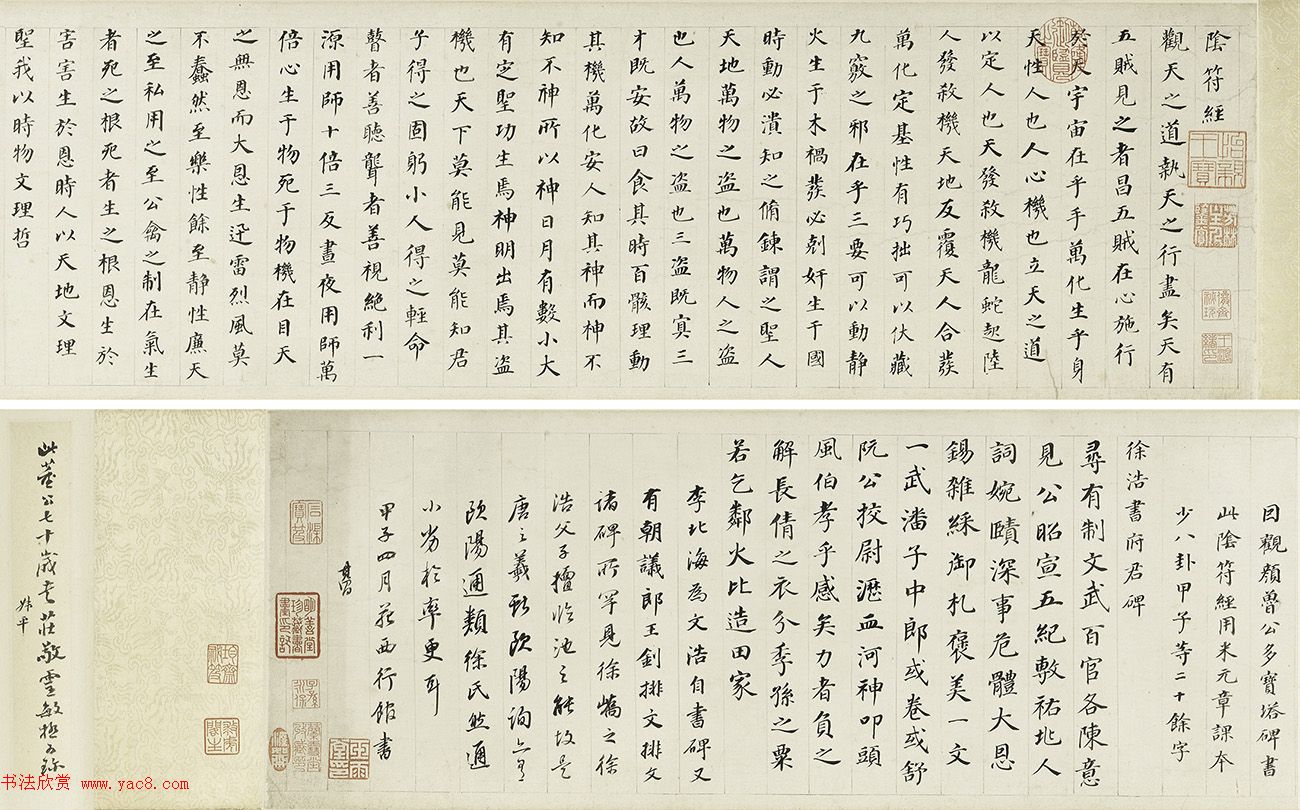 陰符經
觀天之道執天之行盡矣天有
五賊見之者昌五賊在心施行
於天宇宙在乎手萬化生乎身
天性人也人心機也立天之道
以定人也天發殺機龍蛇起陸
人發殺機天地反覆天人合發
萬化定基性有巧拙可以伏藏
九竅之邪在乎三要可以動靜
火生于木禍發必剋奸生于國
時動必潰知之脩鍊謂之聖人
天地萬物之盜也萬物人之盜
也人萬物之盜也三盜既寘三
才既安故曰食其時百骸理動
其機萬化安人知其神而神不
知不神所以神日月有數小大
有定聖功生焉神明出焉其盜
機也天下莫能見莫能知君
子得之固躬小人得之輕命
瞽者善聽聾者善視絕利一
源用師十倍三反晝夜用師萬
倍心生于物死于物機在目天
之無恩而大恩生迅雷烈風莫
不蠢然至樂性餘至靜性廉天
之至私用之至公禽之制在氣生
者死之根死者生之根恩生於
害害生於恩時人以天地文理
聖我以時物文理哲
因觀顏魯公多寶塔碑書
此陰符經用米元章課本
少八卦甲子等二十餘字
徐浩書府君碑
尋有制文武百官各陳意
見公昭宣五紀敷祐兆人
詞婉賾深事危體大恩
錫雜綵御札褒美一文
一武潘子中郎或卷或舒
阮公校尉瀝血河神叩頭
風伯孝乎感矣力者負之
解長倩之衣分季孫之粟
若乞鄰火比造田家
李北海為文浩自書碑又
有朝議郎王釗排文排文
諸碑所罕見徐嶠之徐
浩父子擅臨池之能故是
唐之羲獻歐陽詢亦有
歐陽通類徐氏然通
小劣於率更耳
甲子四月苑西行館書
其昌
此董公七十歲書莊敬靈敏極可珍
書法欣賞 www.yac8.com